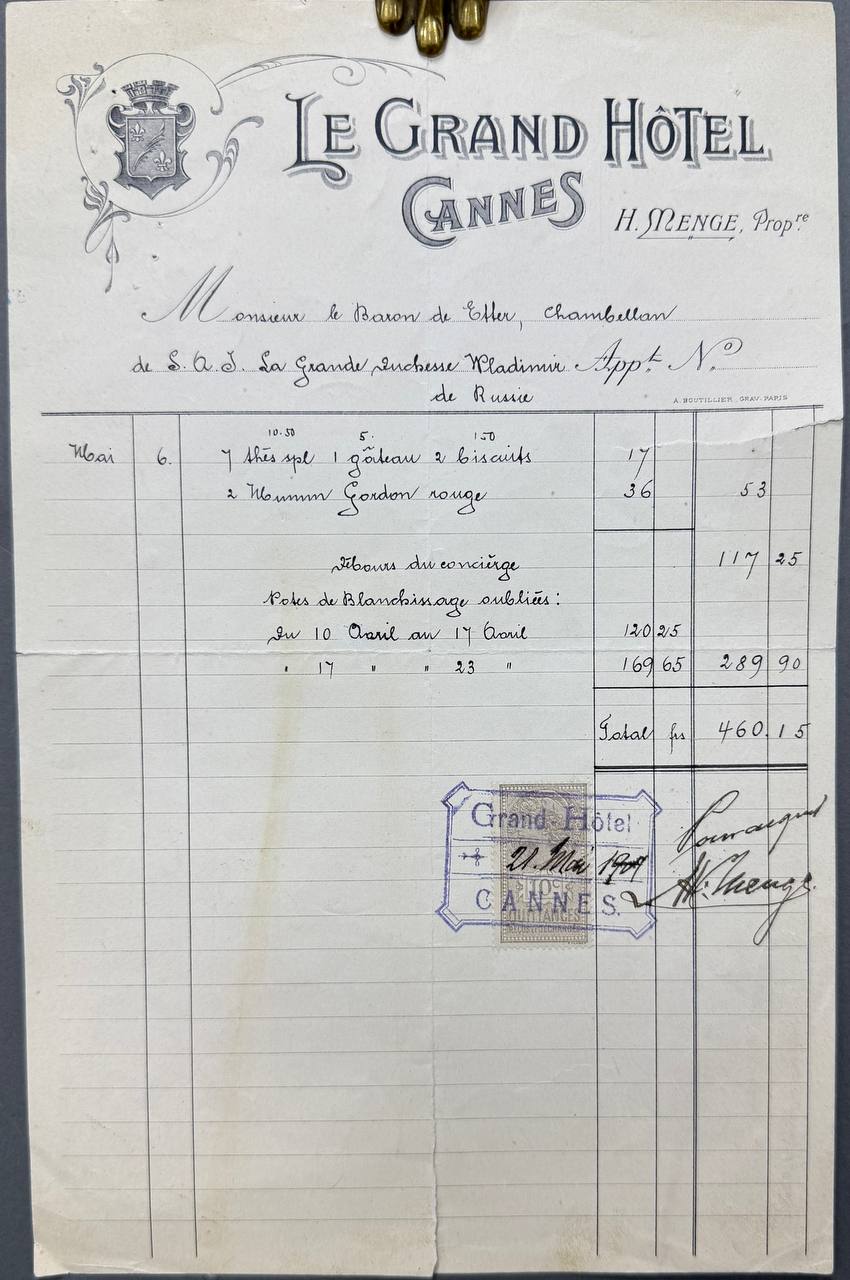 LE GRAND HÔTEL
CANNES
H. MENGE, Propre.
Monsieur le Baron de Etter, Chambellan
de S. A. I. La Grande Duchesse Wladimir Appt. No
de Russie
A. BOUTILLIER, GRAV. PARIS
10.50 5. 1 50
Mai 6. 7 thés spl 1 gâteau 2 biscuits 17
2 Mumm Gordon rouge 36 53
Débours du concièrge 117 25
Notes de Blanchissage oubliées:
Du 10 Avril au 17 Avril 120 25
" 17 " " 23 " 169 65 289 90
Total frs 460.15
Grand-Hôtel
21. Mai 1909
10c
CANNES.
QUITTANCES
Pour acquit
H. Menge.